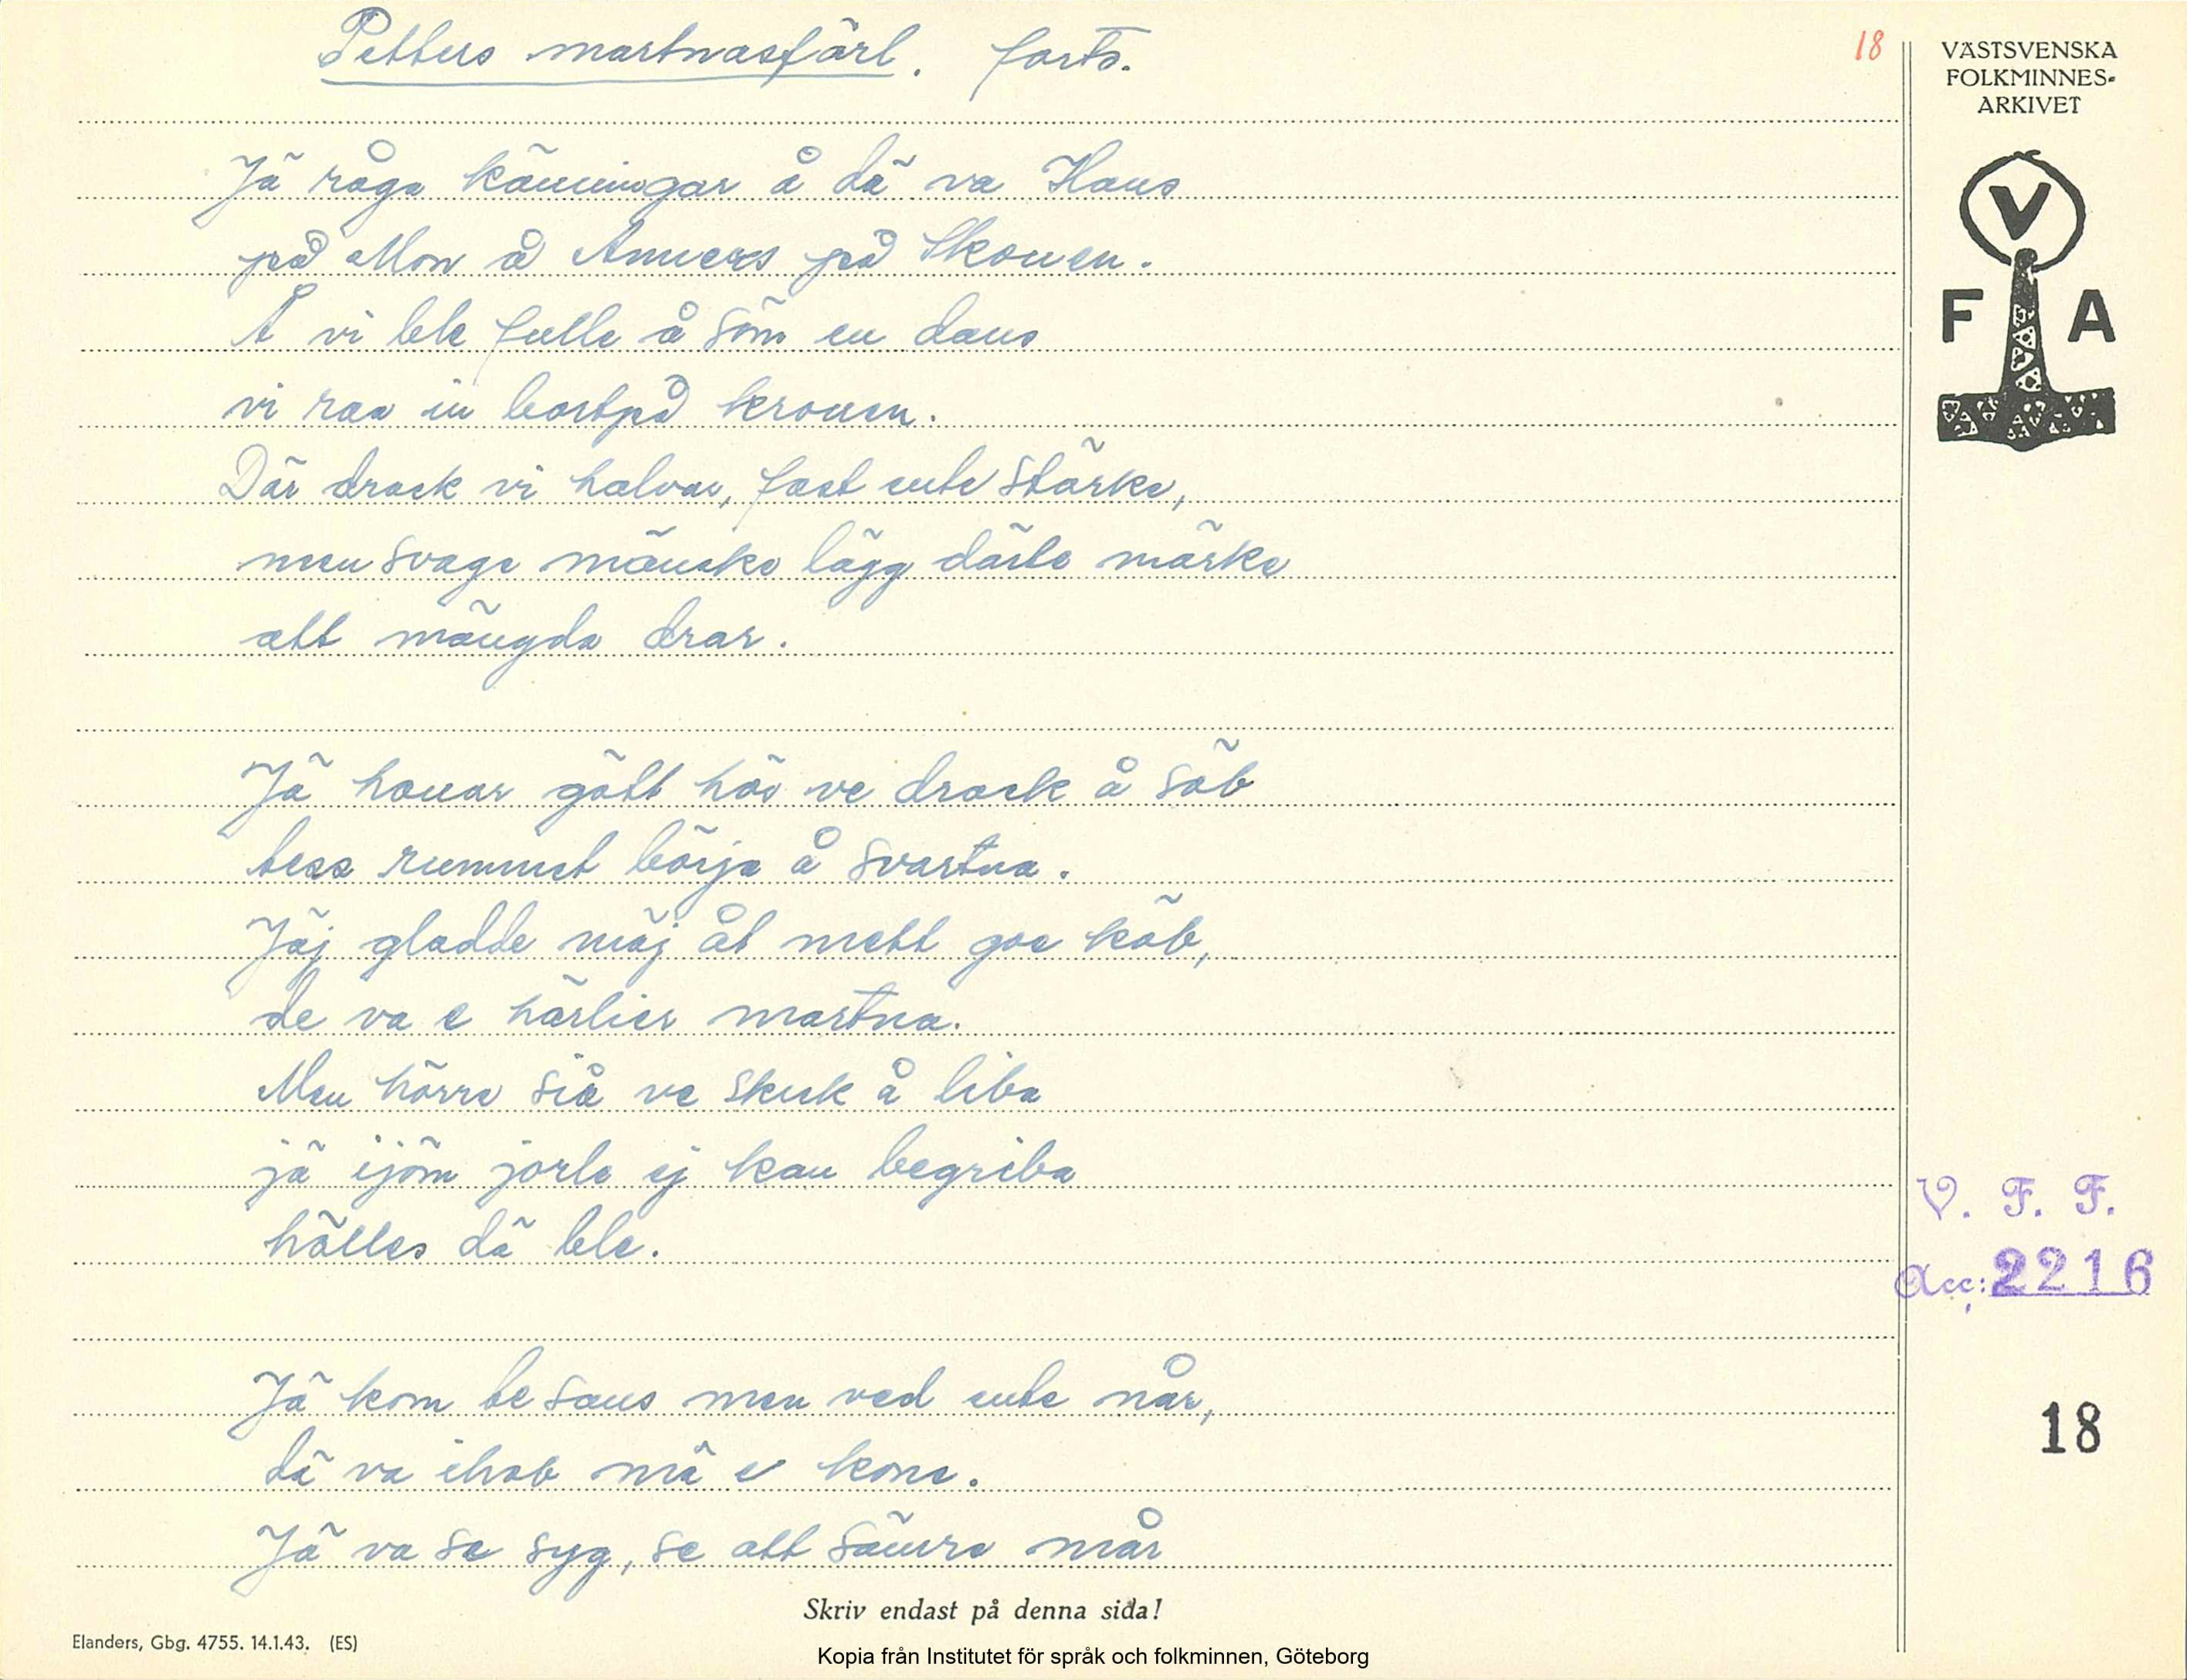 Petters martnasfärl. forts.
18
VÄSTSVENSKA
FOLKMINNES-
ARKIVET
V
F A
Jä råga känningar å dä va Hans
på Mon å Anners på Skouen.
Å vi ble fulle å söm en dans
vi raa in bortpå krouen.
Där drack vi halvar, fast ente stärke,
men svage mänske lägg därte märke
att mängda drar.
Jä houar gött hös ve drack å söb
tess rummet börja å svartna.
Jäj gladde mäj åt mett goe köb,
de va e härlier martna.
Men hörre siå ve skuk å liba
jä ijöm jorle ej kan begriba
hölles dä ble.
Jä kom te sans men ved ente når,
dä va ihob mä e kone.
Jä va se syg, se att sämre mår
V. F. F.
Acc: 2216
18
Skriv endast på denna sida!
Elanders, Gbg. 4755. 14.1.43. (ES)
Kopia från Institutet för språk och folkminnen, Göteborg